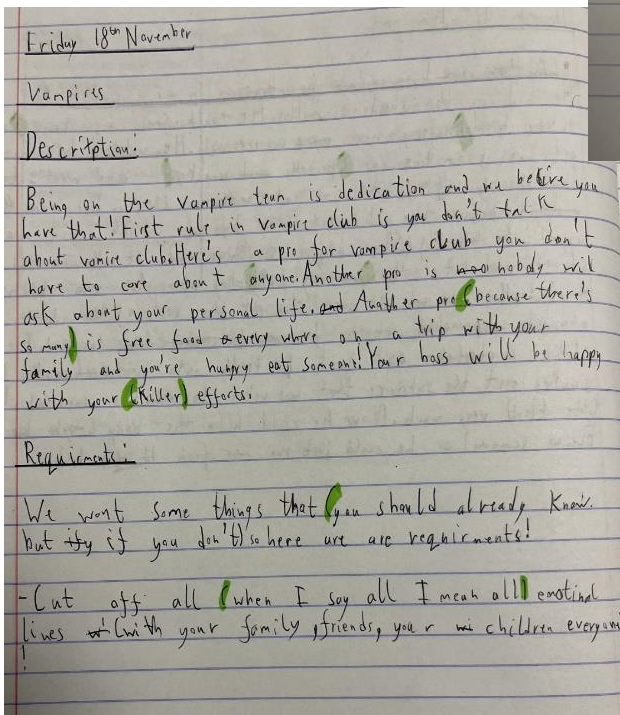 Friday 18th November
Vampires
Descritption:
Being on the vampire team is dedication and we belive you
have that! First rule in vampire club is you don't talk
about vamire club. Here's a pro for vampire club you don't
have to care about anyone. Another pro is nobody will
ask about your personal life. and Another pro (because there's
so many) is free food every where on a trip with your
family and you're hungry eat someone! Your boss will be happy
with your (Killer) efforts.
Requirments:
We want some things that (you should already know.
but if you don't) so here are are requirments!
-Cut off all (when I say all I mean all) emotinal
lines (with your family, friends, your children everyone
!